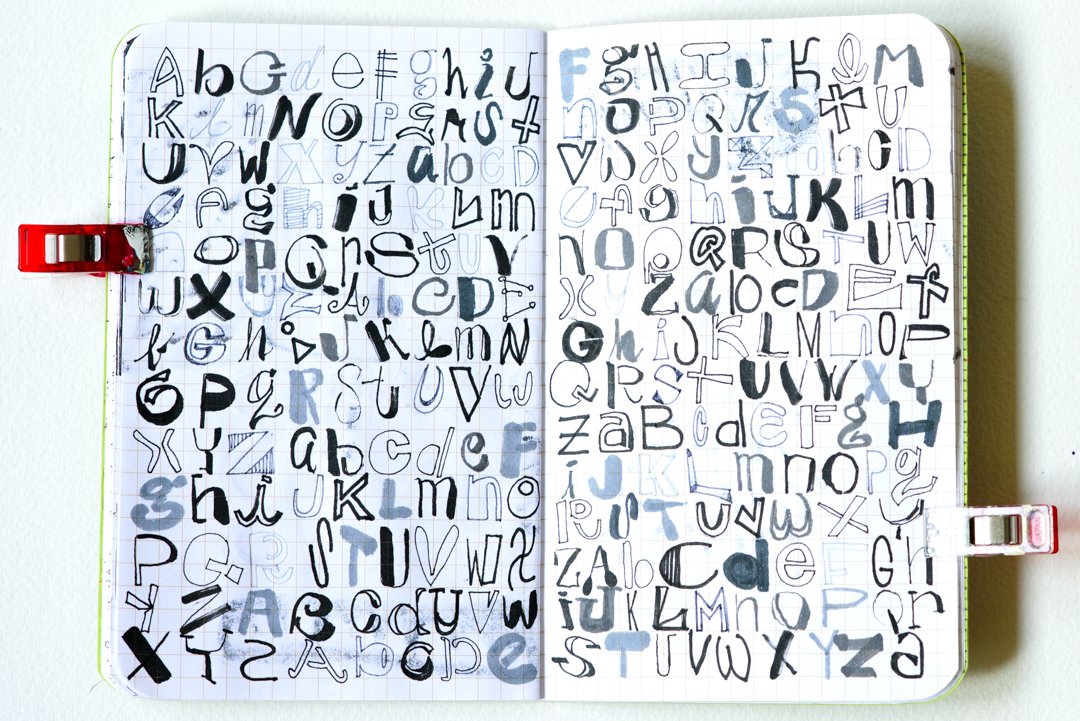 A b C d e F g h i J
K l m N O P q r S t
U V W X Y Z a b C D
e A g h i J K L m
n o p Q r S t U V
W X Y Z A b C D E
f G h i J K l m N
O P q R S t U V w
X Y Z a b C d e F
g h i J K L m n o
P Q R S T U V W X
Y Z A B C d U V W
X Y Z A b c d e
F g H I J K l M
n O P Q R S t U
V W X y Z a b C D
e f g h i J K L m
n O p Q R S T U W
X Y Z a b c D E f
G h i J K L M n O P
Q R S t U V W X Y
Z a B c d E F g H
i J K L m n O P q
R S T U V W X Y
Z A b C d e F G h
i J K L M n O P Q r
S T U V W X Y Z a